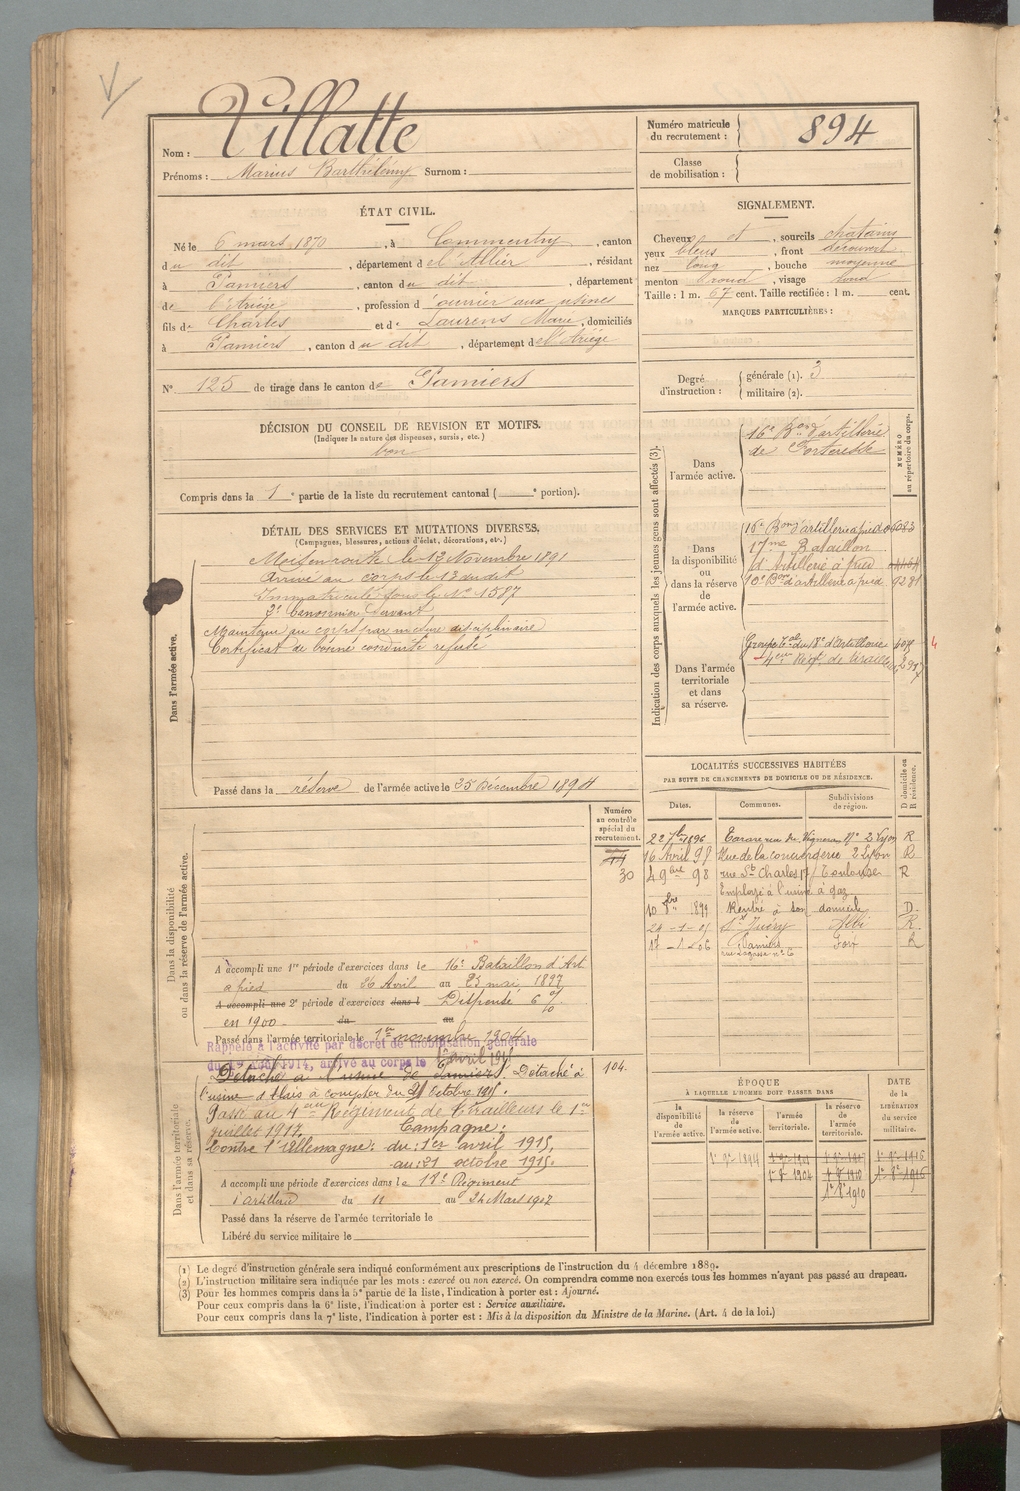 Villatte
Nom :
Prénoms : Marius Barthélémy Surnom :
Numéro matricule
du recrutement : 894
Classe
de mobilisation :
ÉTAT CIVIL.
Né le 6 mars 1870, à Commentry, canton
du dit, département de l'Allier, résidant
à Pamiers, canton du dit, département
de l'Ariège, profession d'ouvrier aux usines
fils de Charles et de Laurens Marie, domiciliés
à Pamiers, canton du dit, département de l'Ariège
N° 125 de tirage dans le canton de Pamiers
SIGNALEMENT.
Cheveux et, sourcils chatains
yeux bleus, front découvert
nez long, bouche moyenne
menton rond, visage rond
Taille : 1 m. 67 cent. Taille rectifiée : 1 m. cent.
MARQUES PARTICULIÈRES :
Degré
d'instruction :
générale (1). 3
militaire (2).
DÉCISION DU CONSEIL DE REVISION ET MOTIFS.
(Indiquer la nature des dispenses, sursis, etc.)
bon
Compris dans la 1e partie de la liste du recrutement cantonal ( e portion).
DÉTAIL DES SERVICES ET MUTATIONS DIVERSES.
(Campagnes, blessures, actions d'éclat, décorations, etc.)
Dans l'armée active.
Mis en route le 12 Novembre 1891
Arrivé au corps le 13 du dit
Immatriculé sous le N° 1587
2e Canonnier Servant
Maintenu au corps par mesure disciplinaire
Certificat de bonne conduite refusé
Passé dans la réserve de l'armée active le 25 Décembre 1894
Indication des corps auxquels les jeunes gens sont affectés (3).
NUMÉRO
au répertoire du corps.
Dans
l'armée active.
16e Bon d'artillerie
de Forteresse
Dans
la disponibilité
ou
dans la réserve
de
l'armée active.
16e Bon d'artillerie à pied 06083
17me Bataillon
d'Artillerie à pied
10e Bon d'artillerie à pied 9281
Dans l'armée
territoriale
et dans
sa réserve.
Groupe Tal du d'Artillerie
4eme Régt de tirailleurs
LOCALITÉS SUCCESSIVES HABITÉES
PAR SUITE DE CHANGEMENTS DE DOMICILE OU DE RÉSIDENCE.
Dates. Communes. Subdivisions
de région.
D domicile ou
R résidence.
22 7bre 1896 N° 2 Lyon R
16 Avril 97 Rue de la conciergerie 2 Lyon R
4 9bre 98 rue St Charles Toulouse R
Employé à l'usine à gaz
10 8bre 1899 Rentré à son domicile D.
St Juéry Albi R.
17-1-06 Pamiers Foix R
Dans la disponibilité
ou dans la réserve de l'armée active.
Numéro
au contrôle
spécial du
recrutement.
30
A accompli une 1re période d'exercices dans le 16e Bataillon d'Art
à pied du 26 Avril au 23 mai 1897
A accompli une 2e période d'exercices dans l Dispensé 6 %
en 1900 du au
Passé dans l'armée territoriale le 1er novembre 1904
Rappelé à l'activité par décret de mobilisation générale
du 1er Août 1914, arrivé au corps le 1er avril 1915
Dans l'armée territoriale
et dans sa réserve.
Détaché à l'usine de Pamiers. Détaché à
l'usine d'Alais à compter du 21 octobre 1915.
Passé au 4eme Régiment de Tirailleurs le 1er
juillet 1917.
Campagne :
Contre l'Allemagne : du : 1er avril 1915,
au : 21 octobre 1915.
104.
A accompli une période d'exercices dans le 18e Régiment
d'artillerie du 11 au 24 Mars 1907
Passé dans la réserve de l'armée territoriale le
Libéré du service militaire le
ÉPOQUE
À LAQUELLE L'HOMME DOIT PASSER DANS
DATE
de la
LIBÉRATION
du service
militaire.
la
disponibilité
de
l'armée active.
la réserve
de
l'armée active.
l'armée
territoriale.
la réserve
de
l'armée
territoriale.
1er 9bre 1894
1er 8bre 1904 1er 8bre 1910 1er 8bre 1916
1er 8bre 1910
(1) Le degré d'instruction générale sera indiqué conformément aux prescriptions de l'instruction du 4 décembre 1889.
(2) L'instruction militaire sera indiquée par les mots : exercé ou non exercé. On comprendra comme non exercés tous les hommes n'ayant pas passé au drapeau.
(3) Pour les hommes compris dans la 5e partie de la liste, l'indication à porter est : Ajourné.
Pour ceux compris dans la 6e liste, l'indication à porter est : Service auxiliaire.
Pour ceux compris dans la 7e liste, l'indication à porter est : Mis à la disposition du Ministre de la Marine. (Art. 4 de la loi.)